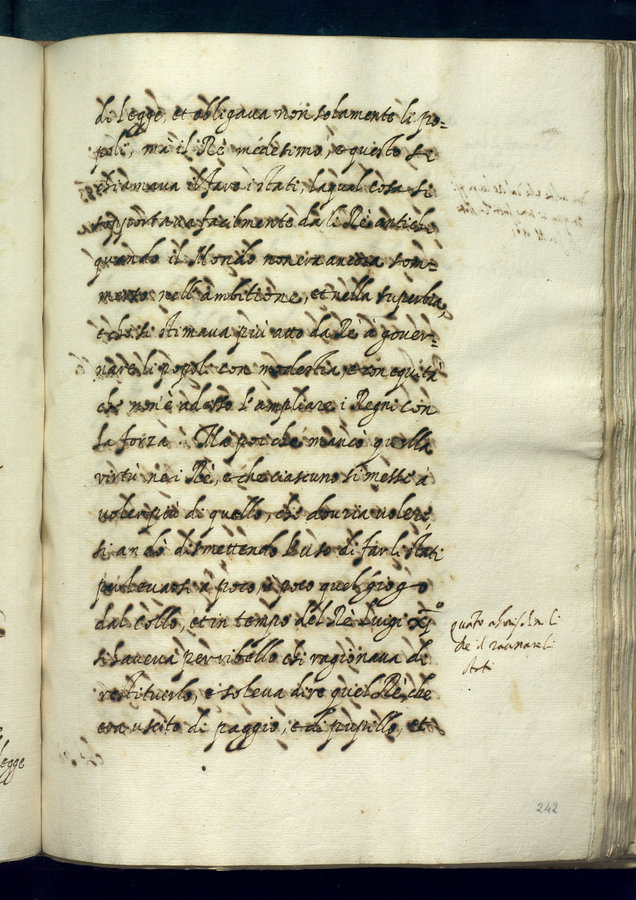 di legge, et obligaua non solamente li po-
poli, mà il Rè medesimo, e questo si
chiamaua il fare i stati, la qual cosa si
sopportaua facilmente da li Rè antichi
quando il Mondo non era ancora som-
merso nell'ambitione, et nella superbia,
e che si stimaua più atto da Rè à gouer-
nare li popoli con modestia, e con equità
che non è adesso l'ampliare i Regni con
la forza. Mà poi che mancò quella
virtù nei Rè, e che ciascuno si messe à
voler più di quello, che douria uolere
si andò dismettendo l'uso di far li stati
per leuarsi à poco, à poco quel giogo
dal collo, et in tempo del Rè Luigi XI°
si haueua per ribello chi ragionaua di
restituerlo, e soleua dire quel Rè, che
era uscito di paggio, e di pupillo, et
che il
stati
242
legge